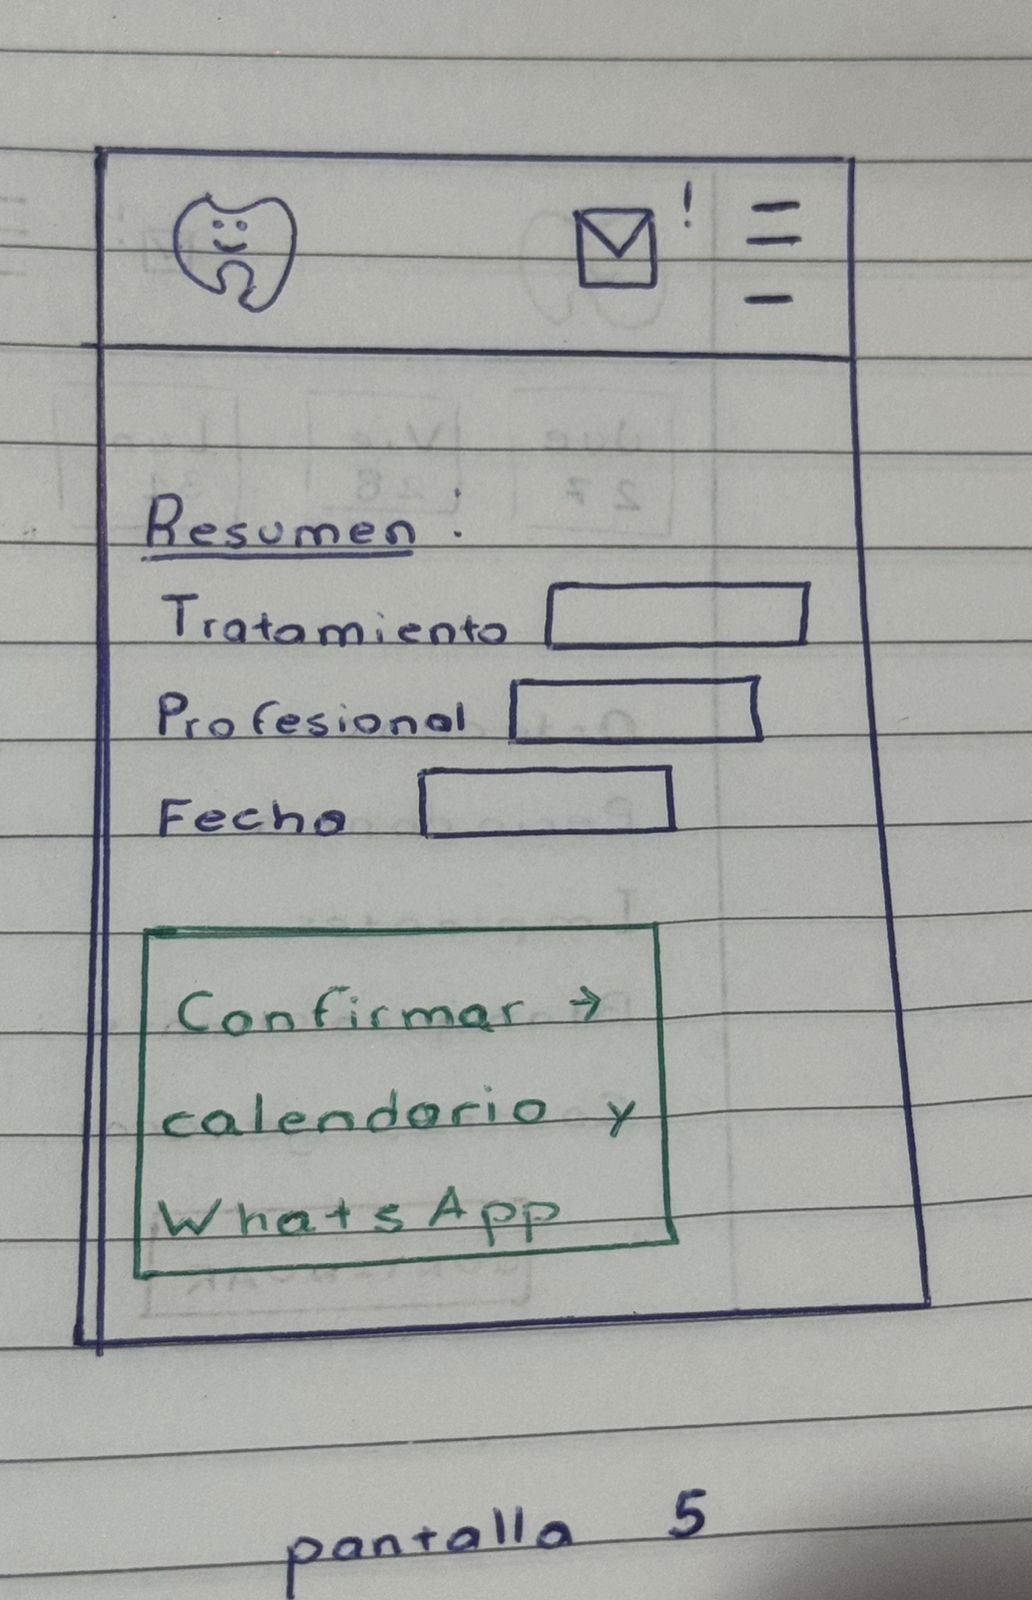 !
Resumen :
Tratamiento
Profesional
Fecha
Confirmar →
calendario y
WhatsApp
pantalla 5